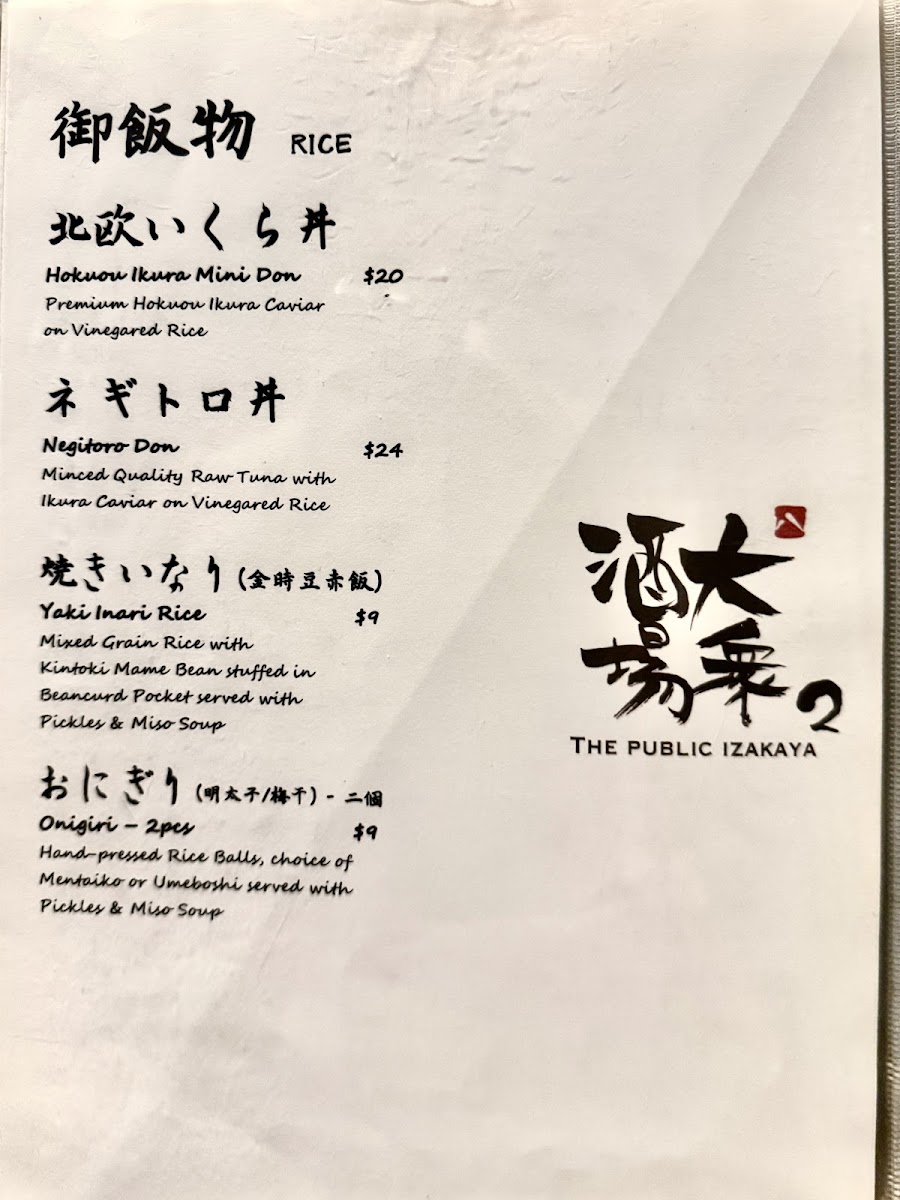 御飯物 RICE
北欧いくら丼
Hokuou Ikura Mini Don $20
Premium Hokuou Ikura Caviar
on Vinegared Rice
ネギトロ丼
Negitoro Don $24
Minced Quality Raw Tuna with
Ikura Caviar on Vinegared Rice
焼きいなり (金時豆赤飯)
Yaki Inari Rice $9
Mixed Grain Rice with
Kintoki Mame Bean stuffed in
Beancurd Pocket served with
Pickles & Miso Soup
おにぎり (明太子/梅干) - 二個
Onigiri - 2pcs $9
Hand-pressed Rice Balls, choice of
Mentaiko or Umeboshi served with
Pickles & Miso Soup
大衆
酒場
2
THE PUBLIC IZAKAYA